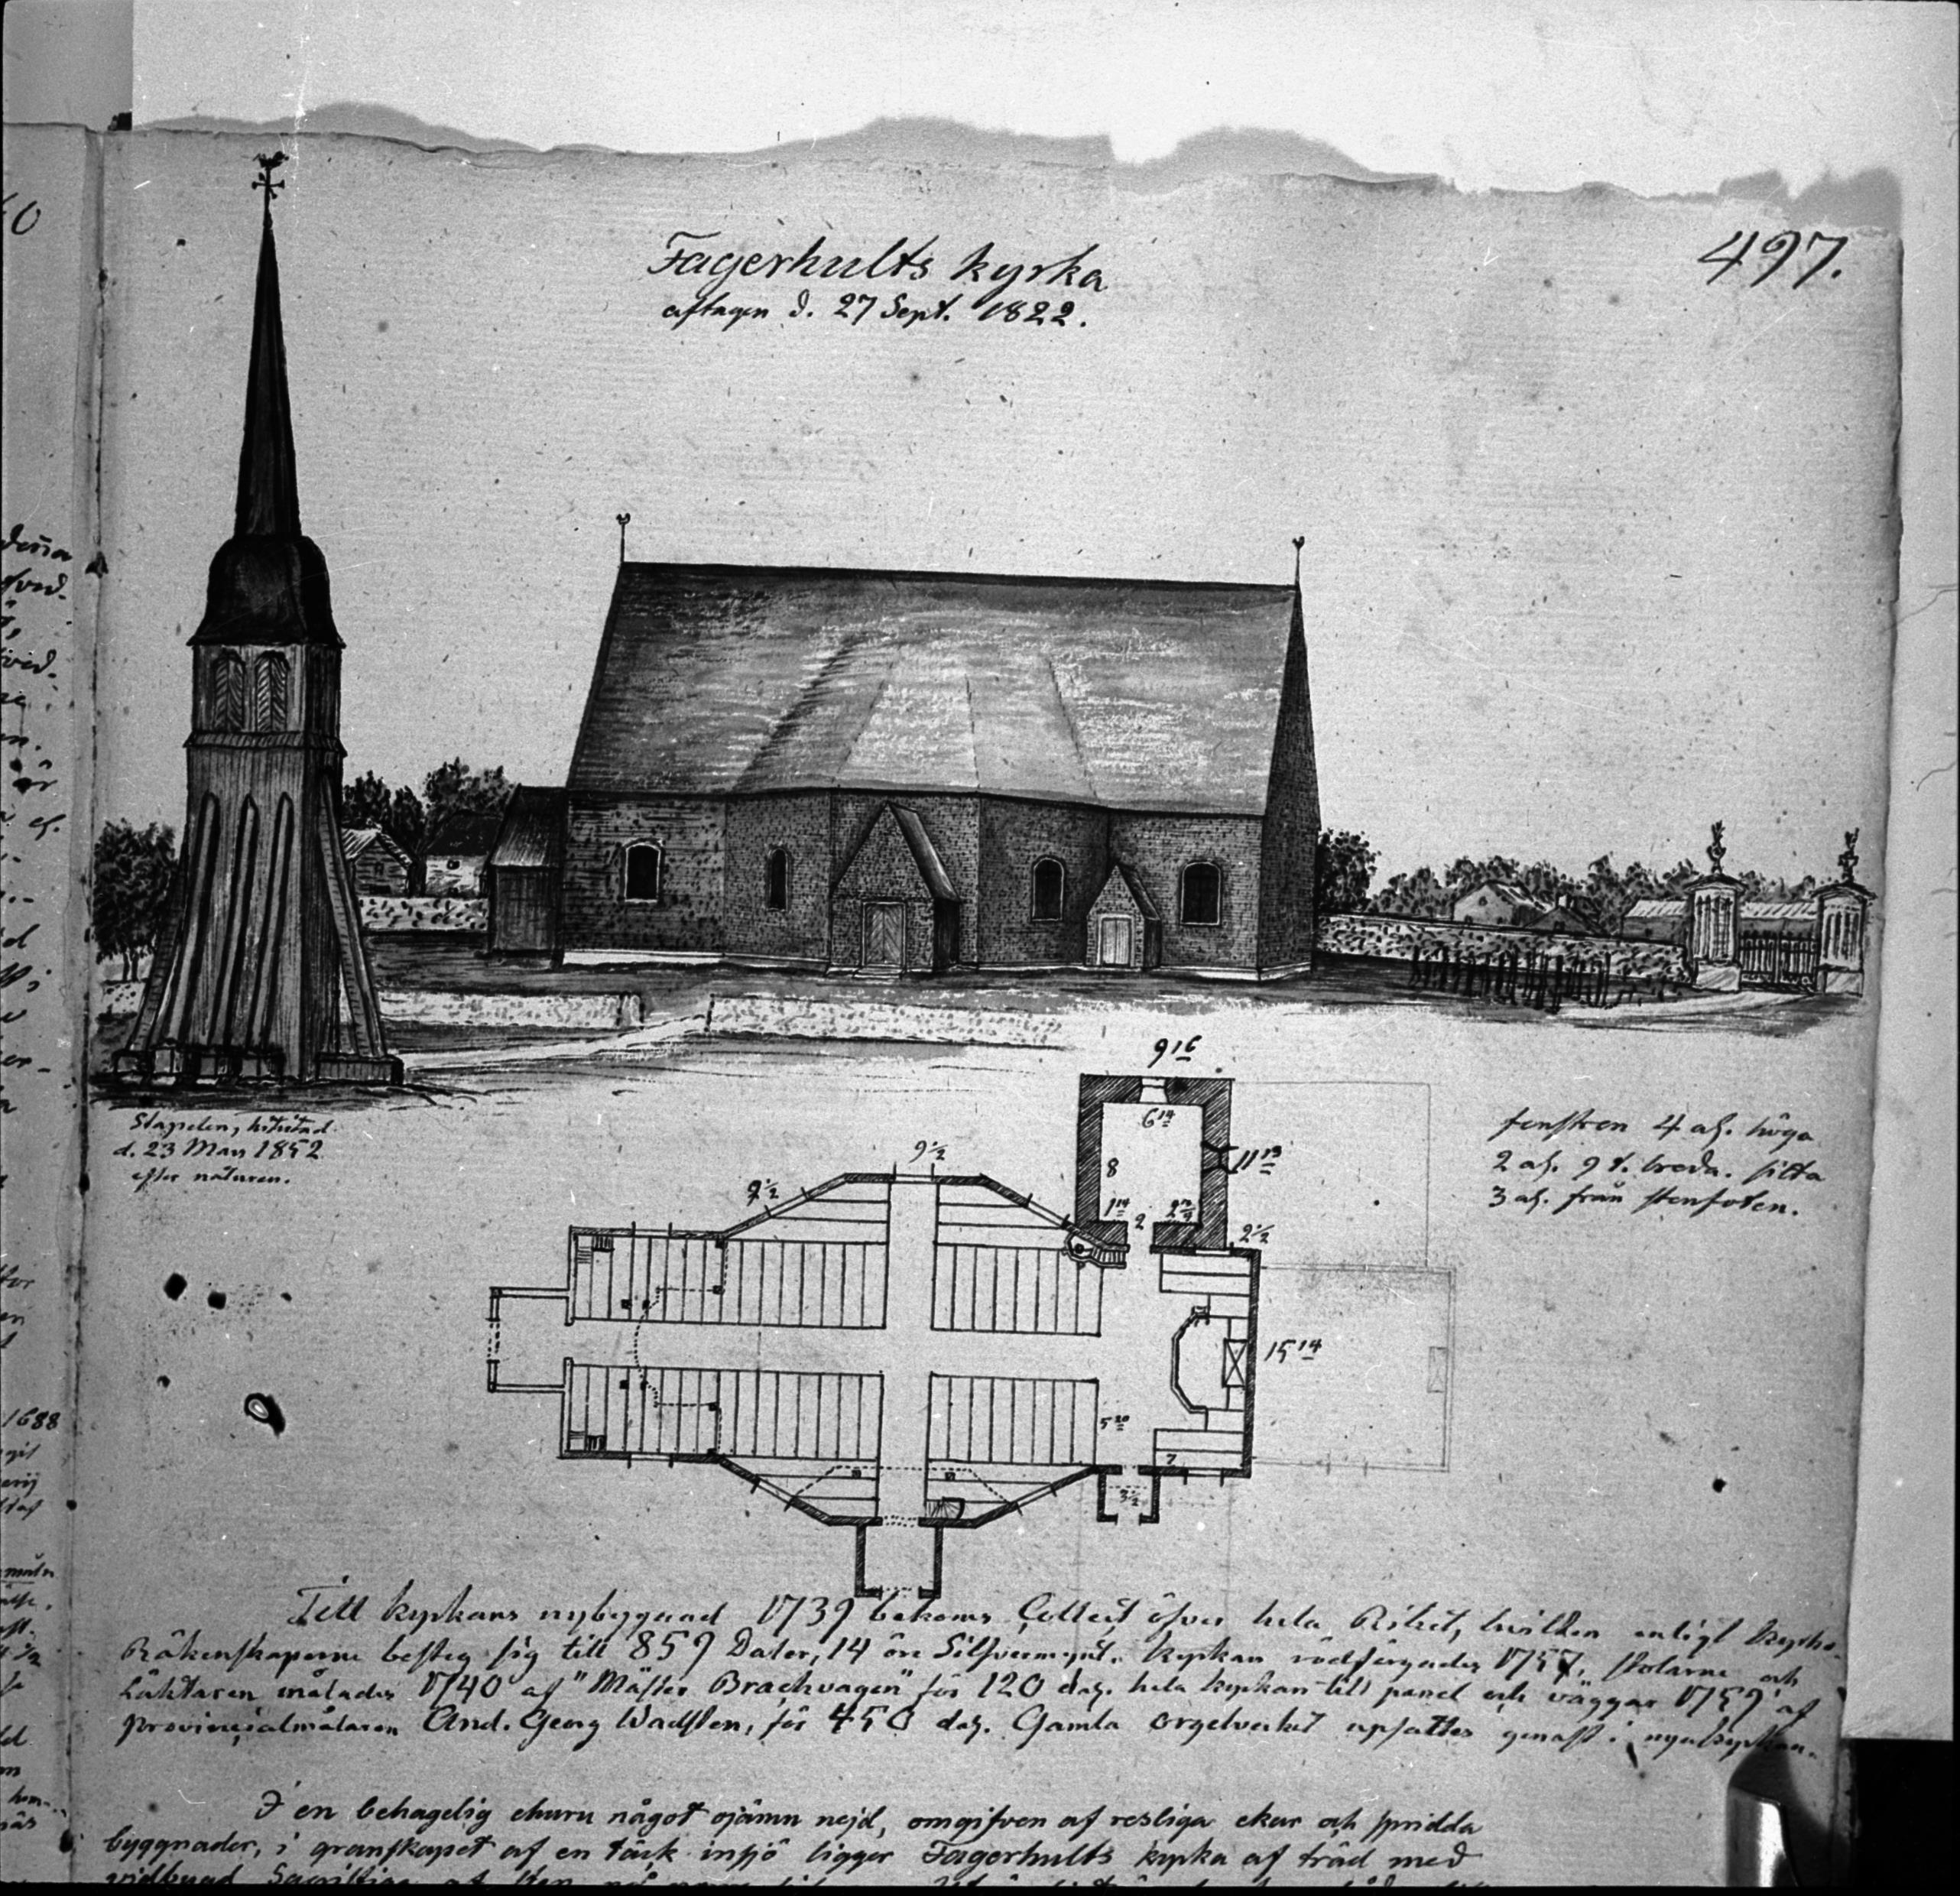 497.
Fagerhults kyrka
aftagen d. 27 Sept. 1822.
Stapelen, hitritad
d. 23 Maii 1852
efter naturen.
fenstren 4 al. höga
2 al. 9 t. breda. sitta
3 al. från stenfoten.
9 16
6 14
8
11 13
1 14
2
9 1/2
9 1/2
2 1/2
15 14
5 20
7
3 1/2
Till kyrkans nybygnad 1739 bekoms Collect öfver hela Riket, hvilken enligt kyrko-
Räkenskaperne besteg sig till 859 Daler, 14 öre Silfvermynt. Kyrkan rödfärgades 1757, stolarne och
Läktaren målades 1740 af "Mäster Brachvagen" för 120 dal. hela kyrkan till panel och väggar 1759 af
provincialmålaren And. Georg Wadsten, för 450 dal. Gamla orgelverket upsattes genast i nya kyrkan.
I en behagelig ehuru något ojämn nejd, omgifven af resliga ekar och spridda
byggnader, i granskapet af en täck insjö ligger Fagerhults kyrka af träd med
vidbygd Sacristia af sten
dessa
1688